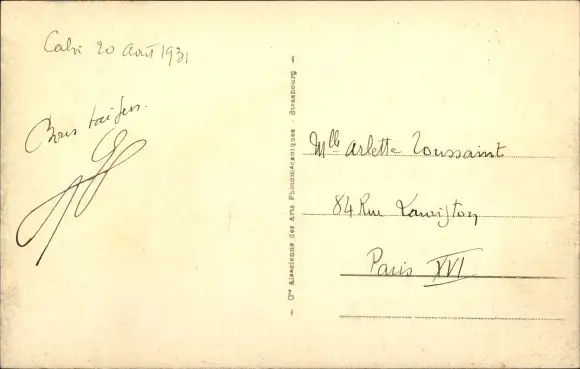 Calvi 20 Août 1931
Bons baisers.
Cie Alsacienne des Arts Photomécaniques - Strasbourg
Mlle Arlette Toussaint
84 Rue Lauriston
Paris XVI